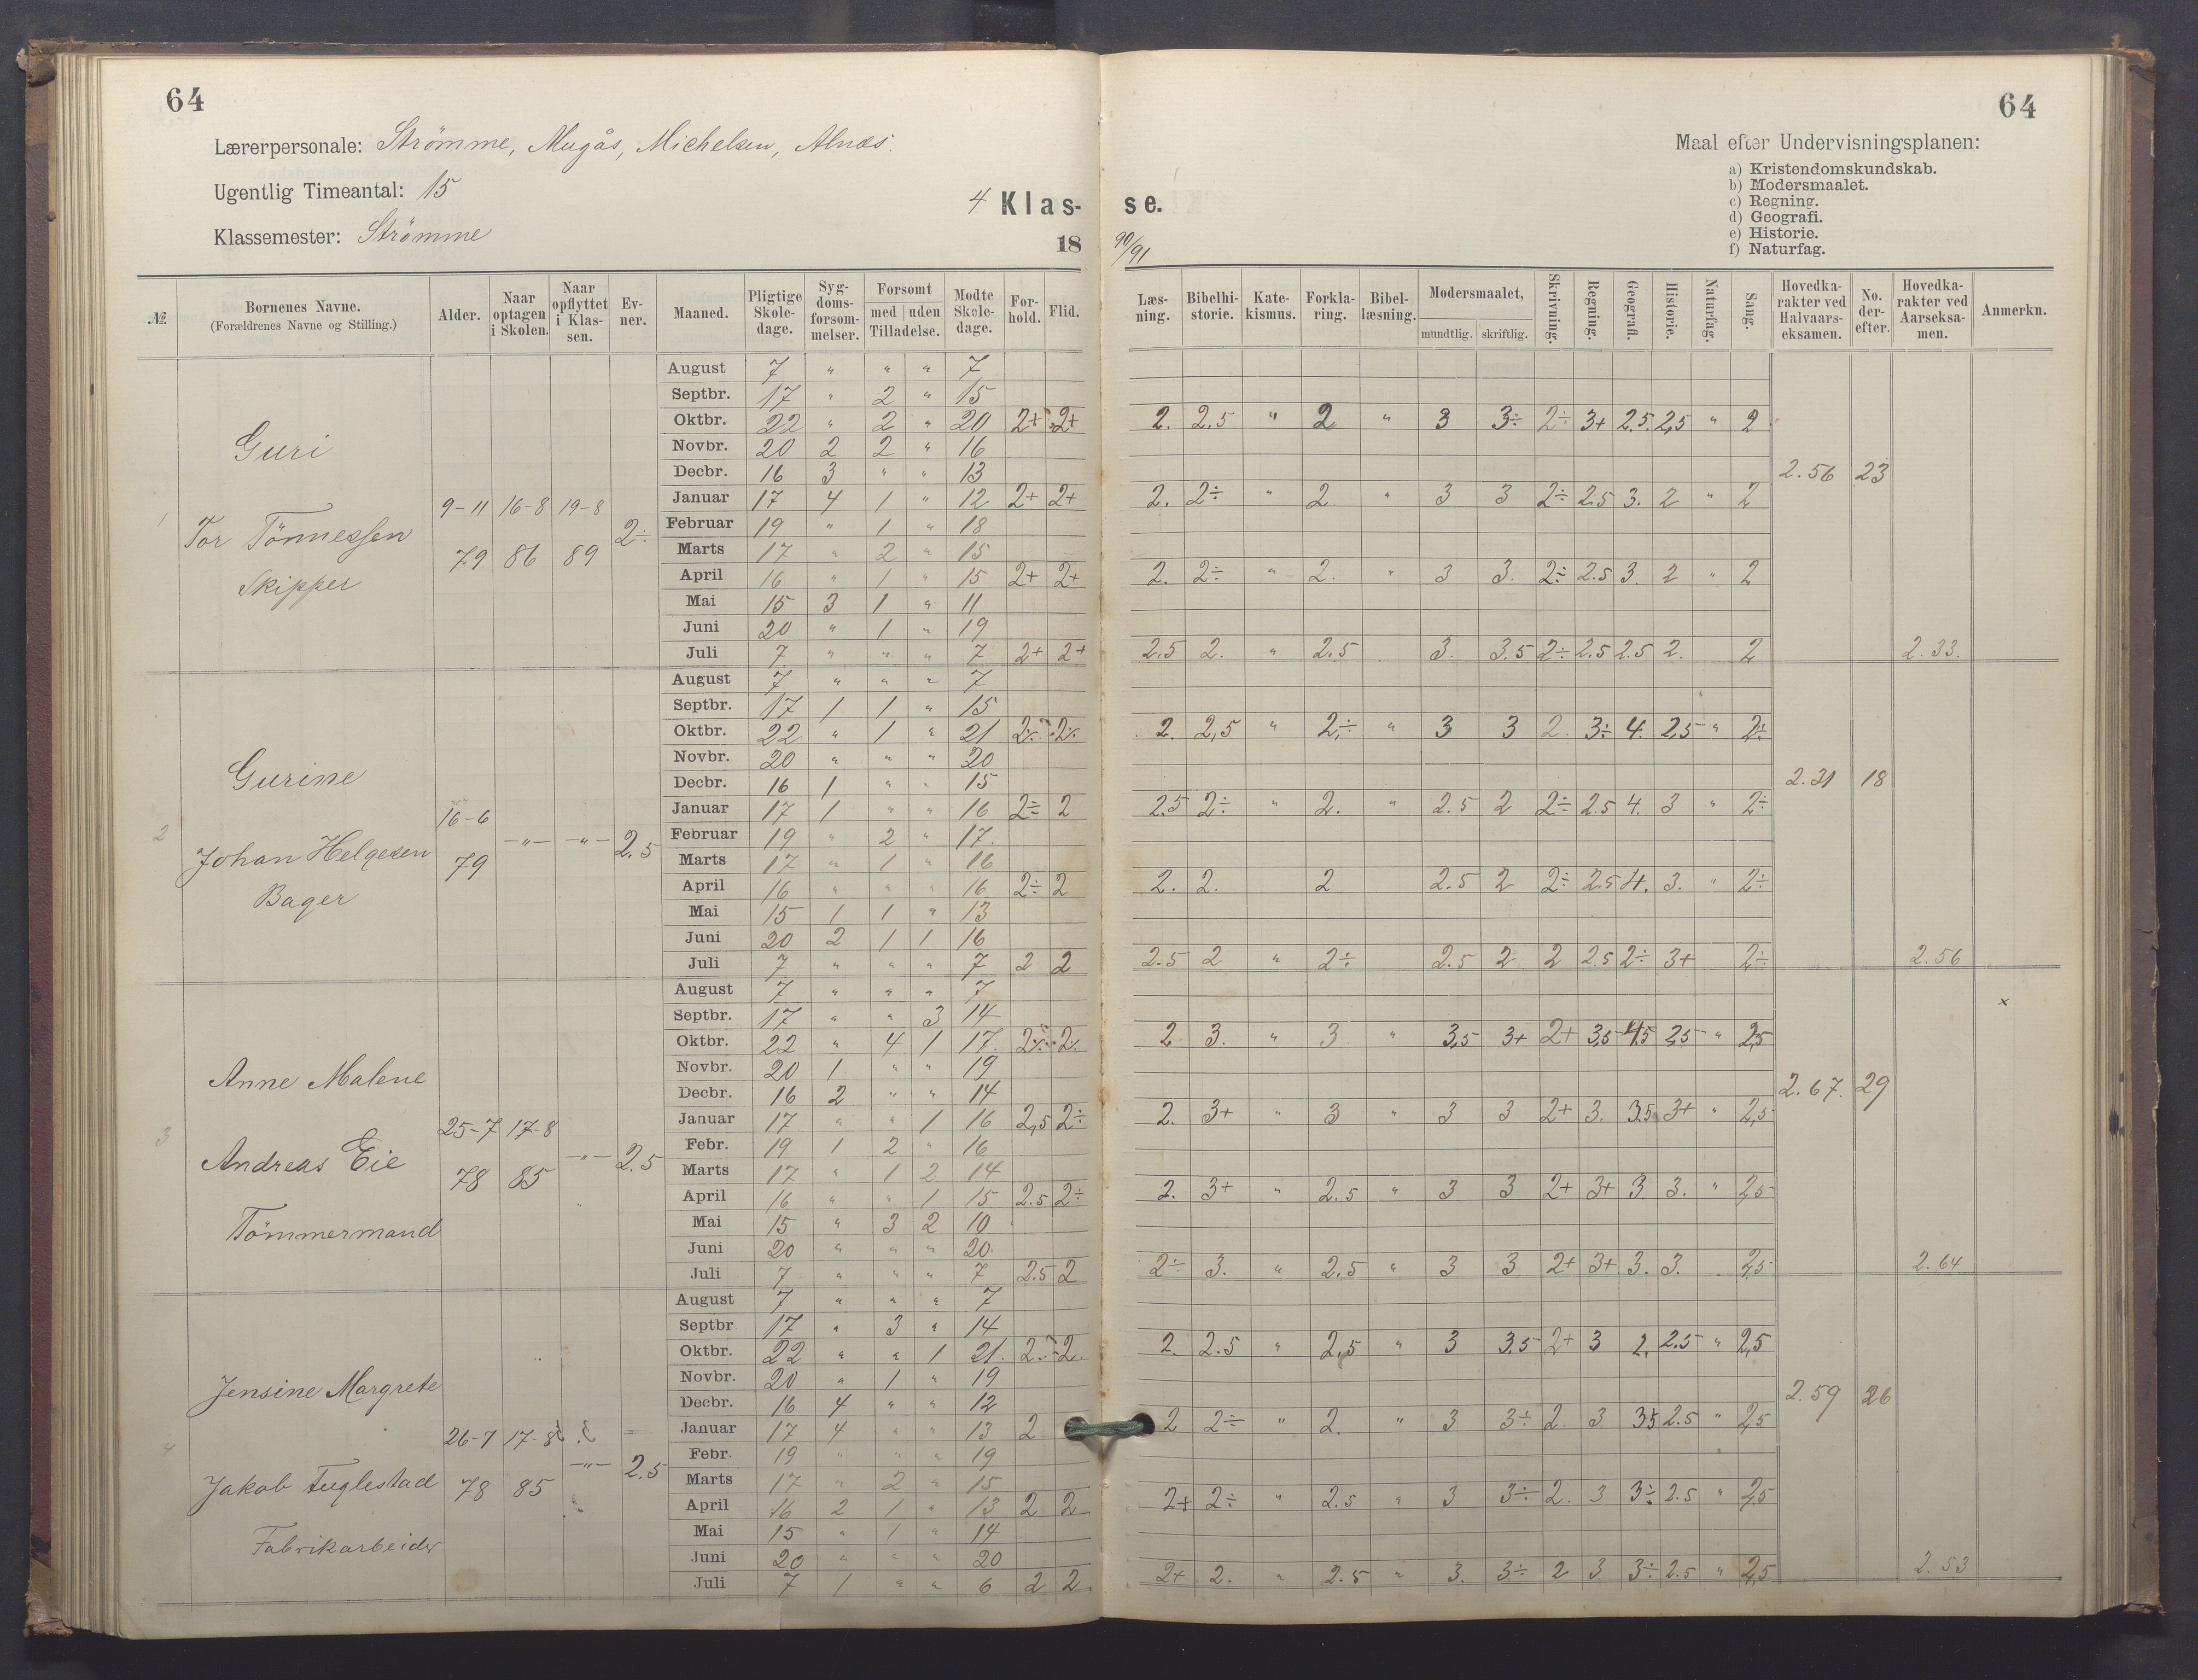 64
Lærerpersonale: Strömme, Mugås, Michelsen, Alnæs.
Ugentlig Timeantal: 15
Klassemester: Strömme
4 Klas-
18
№
Børnenes Navne. (Forældrenes Navne og Stilling.)
Alder.
Naar optagen i Skolen.
Naar opflyttet i Klassen.
Evner.
Maaned.
Pligtige Skoledage.
Sygdomsforsømmelser.
Forsømt med uden Tilladelse.
Mødte Skoledage.
Forhold.
Flid.
1 Guri
Tor Tönnessen
Skipper
9-11 79
16-8 86
19-8 89
2÷
August 7 " " " 7
Septbr. 17 " 2 " 15
Oktbr. 22 " 2 " 20 2+ 2+
Novbr. 20 2 2 " 16
Decbr. 16 3 " " 13
Januar 17 4 1 " 12 2+ 2+
Februar 19 " 1 " 18
Marts 17 " 2 " 15
April 16 " 1 " 15 2+ 2+
Mai 15 3 1 " 11
Juni 20 " 1 " 19
Juli 7 " " " 7 2+ 2+
2 Gurine
Johan Helgesen
Bager
16-6 79
-"- -"- 2.5
August 7 " " " 7
Septbr. 17 1 1 " 15
Oktbr. 22 " 1 " 21 2÷ 2÷
Novbr. 20 " " " 20
Decbr. 16 1 " " 15
Januar 17 1 " " 16 2÷ 2
Februar 19 " 2 " 17.
Marts 17 " 1 " 16
April 16 " " " 16 2÷ 2
Mai 15 1 1 " 13
Juni 20 2 1 1 16
Juli 7 " " " 7 2 2
3 Anne Malene
Andreas Eie
Tömmermand
25-7 78
17-8 85
-"- 2.5
August 7 " " " 7
Septbr. 17 " " 3 14
Oktbr. 22 " 4 1 17. 2÷ 2÷
Novbr. 20 1 " " 19
Decbr. 16 2 " " 14
Januar 17 " " 1 16 2,5 2÷
Febr. 19 1 2 " 16
Marts 17 " 1 2 14
April 16 " " 1 15 2.5 2÷
Mai 15 " 3 2 10
Juni 20 " " " 20.
Juli 7 " " " 7 2.5 2
4 Jensine Margrete
Jakob Fuglestad
Fabrikarbeider
26-7 78
17-8 85
-"- 2.5
August 7 " " " 7
Septbr 17 " 3 " 14
Oktbr. 22 " " 1 21. 2. 2.
Novbr. 20 " 1 " 19
Decbr. 16 4 " " 12
Januar 17 4 " " 13 2
Febr. 19 " " " 19
Marts 17 " 2 " 15
April 16 2 1 " 13 2 2
Mai 15 " 1 " 14
Juni 20 " " " 20
Juli 7 1 " " 6 2 2.
64
Maal efter Undervisningsplanen:
a) Kristendomskundskab.
b) Modersmaalet.
c) Regning.
d) Geografi.
e) Historie.
f) Naturfag.
se.
90/91
Læsning.
Bibelhistorie.
Katekismus.
Forklaring.
Bibellæsning.
Modersmaalet, mundtlig. skriftlig.
Skrivning.
Regning.
Geografi.
Historie.
Naturfag.
Sang.
Hovedkarakter ved Halvaarseksamen.
No. derefter.
Hovedkarakter ved Aarseksamen.
Anmerkn.
2. 2.5 " 2 " 3 3÷ 2÷ 3+ 2.5. 2,5 " 2
2.56 23
2. 2÷ " 2. " 3 3 2÷ 2.5 3. 2 " 2
2. 2÷ " 2. " 3 3. 2÷ 2.5 3. 2 " 2
2.5 2. " 2.5 3. 3.5 2÷ 2.5 2.5 2. 2 2.33.
2. 2,5 " 2÷ " 3 3 2. 3÷ 4. 2,5 " 2÷
2.31 18
2.5 2÷ " 2. " 2.5 2 2÷ 2.5 4. 3 " 2÷
2. 2. 2 2.5 2 2÷ 2.5 4. 3. " 2÷
2.5 2 " 2÷ 2.5 2 2 2.5 2÷ 3+ 2÷ 2.56
x
2 3. " 3 " 3,5 3+ 2+ 3,5 4,5 2,5 " 2,5
2.67. 29
2. 3+ " 3 " 3 3 2+ 3. 3.5 3+ " 2,5
2. 3+ " 2.5 " 3 3 2+ 3+ 3. 3. " 2,5
2÷ 3. " 2.5 " 3 3 2+ 3+ 3. 3. 2,5 2.64
2. 2.5 " 2,5 " 3 3.5 2+ 3 2. 2.5 " 2,5
2.59 26
2 2÷ " 2. " 3 3÷ 2. 3 3.5 2.5 " 2,5
2+ 2÷ " 2.5 " 3 3÷ 2. 3 3÷ 2.5 " 2,5
2+ 2. " 2.5 " 3. 3÷ 2 3. 3÷ 2.5 " 2,5 2.53